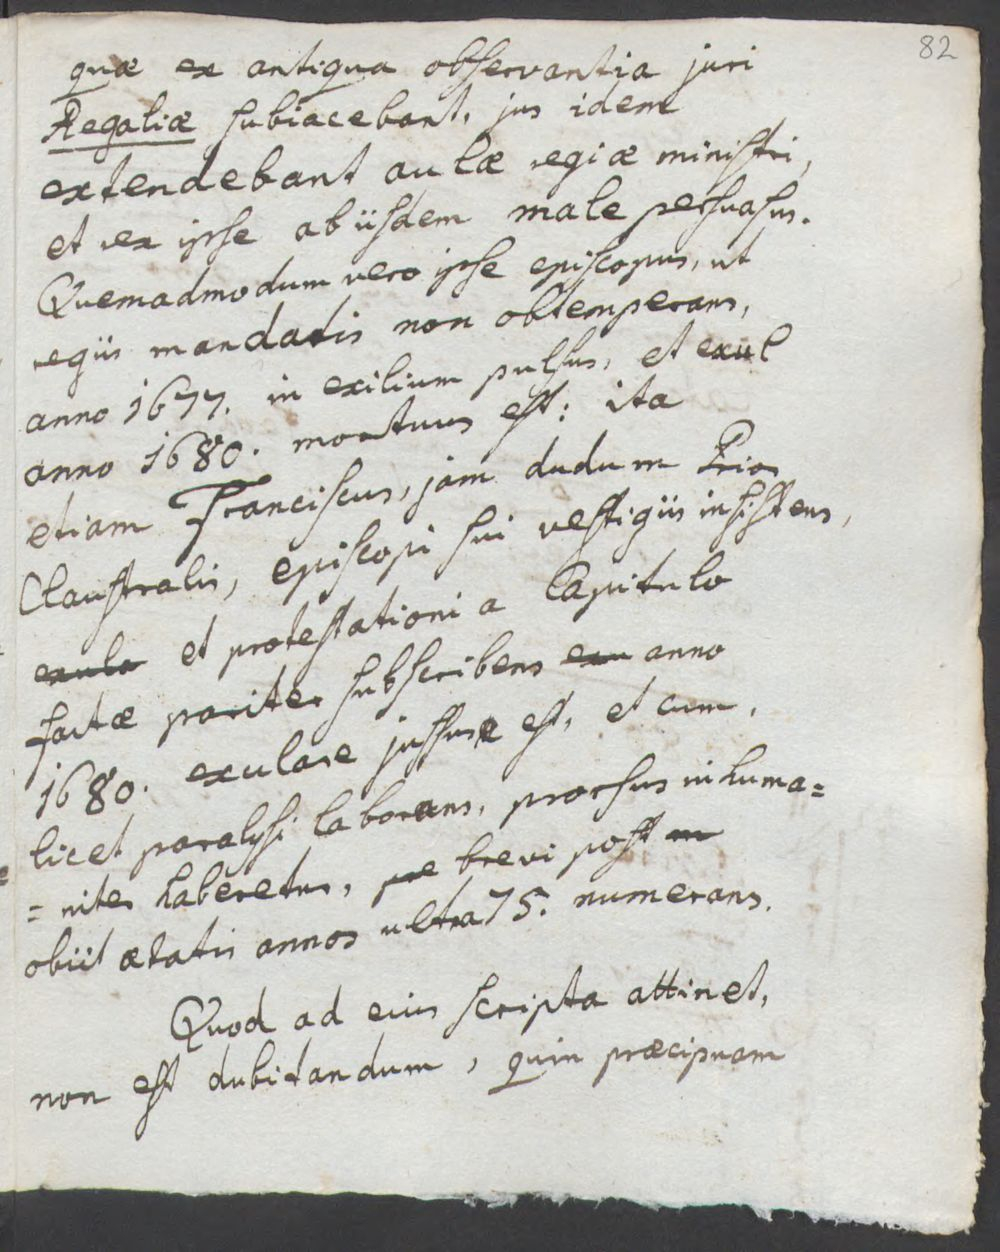 82
quæ ex antiqua observantia juri
Regaliæ subiacebant, jus idem
extendebant aulæ regiæ ministri,
et rex ipse ab iisdem male persuasus.
Quemadmodum vero ipse episcopus, ut
regiis mandatis non obtemperans,
anno 1677. in exilium pulsus, et exul
anno 1680. mortuus est: ita
etiam Franciscus, jam dudum Prior
Claustralis, episcopi sui vestigiis insistens,
exula et protestationi a Capitulo
factæ pariter subscribens exu anno
1680. exulare jussus est, et cum,
licet paralysi laborans, prorsus inhuma=
=niter haberetur, pre brevi post
obiit ætatis annos ultra 75. numerans.
Quod ad eius scripta attinet,
non est dubitandum, quin præcipuam